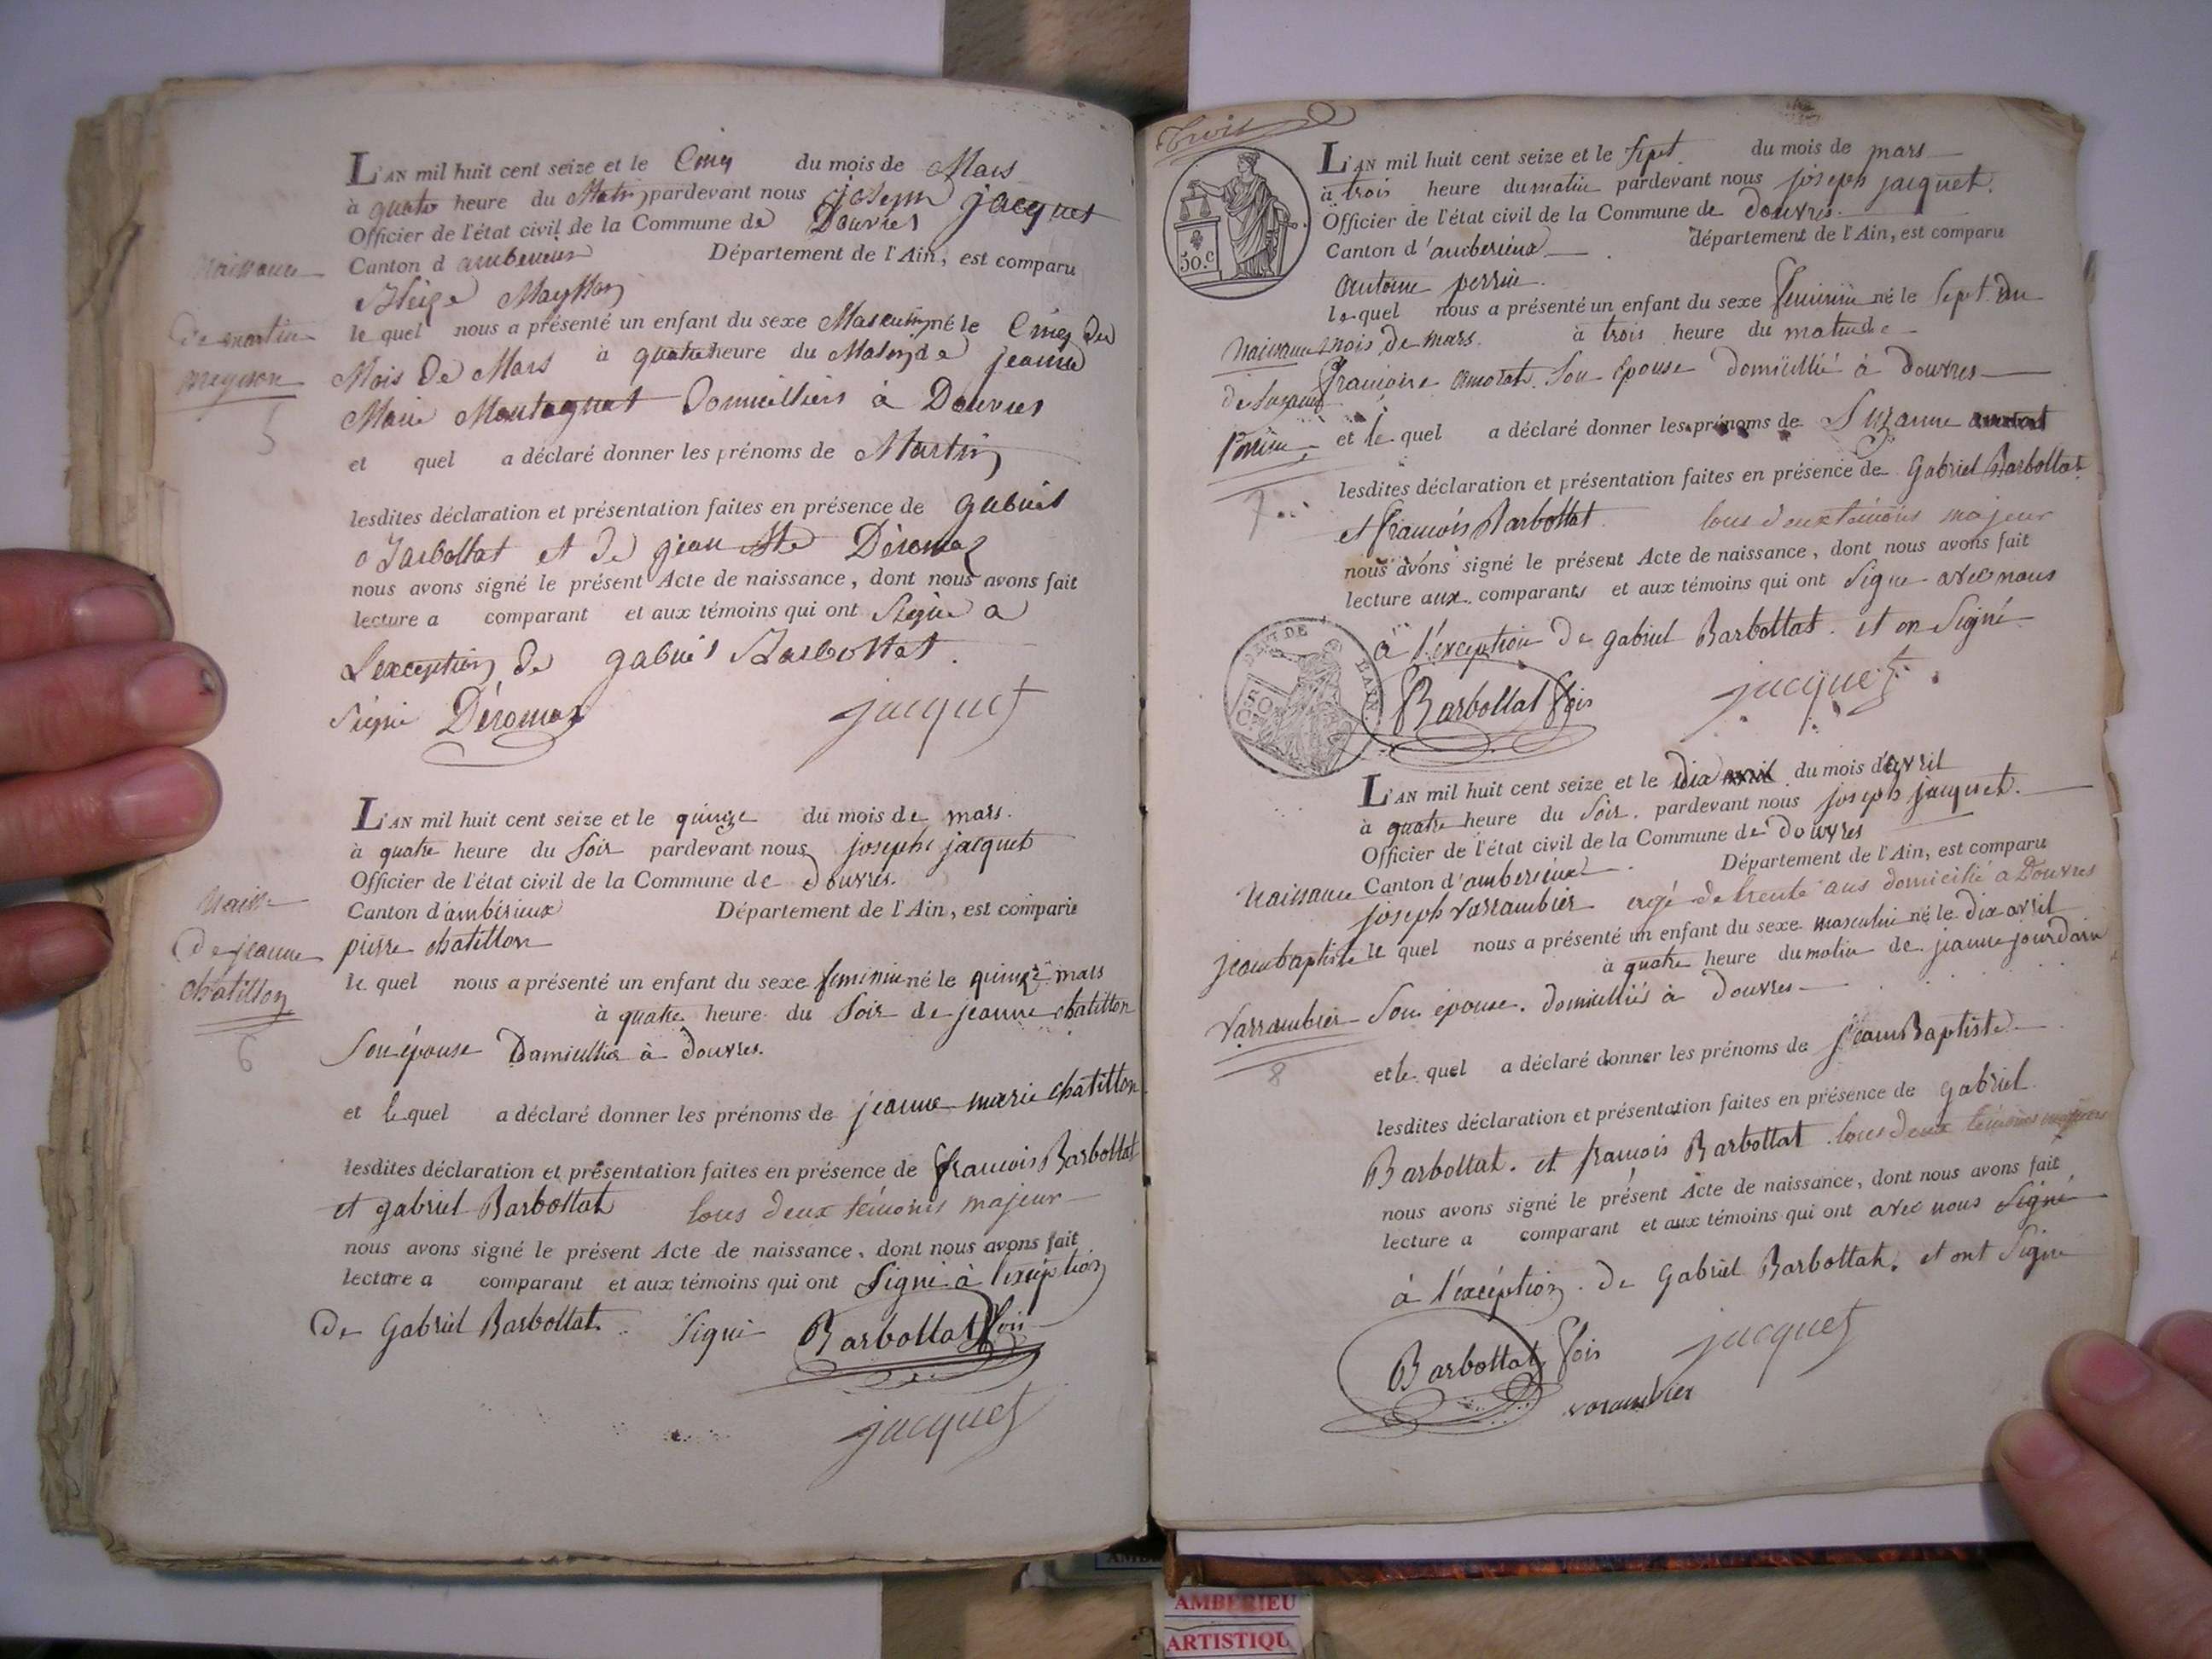 L'AN mil huit cent seize et le Cinq du mois de Mars
à quatre heure du Matin pardevant nous joseph jacquet
Officier de l'état civil de la Commune de Douvres
Canton d amberieux Département de l'Ain, est comparu
Naissance
de martin
meynon
5
le quel nous a présenté un enfant du sexe Masculin né le Cinq du
Mois De Mars à quatre heure du Matin de jeanne
Marie Montagnat Domicilliers à Douvres
et quel a déclaré donner les prénoms de Martin
lesdites déclaration et présentation faites en présence de gabriel
Barbottat et de jean Bte Déromas
nous avons signé le présent Acte de naissance, dont nous avons fait
lecture a comparant et aux témoins qui ont Signé a
L'exception de gabriel Barbottat.
Signé Déromas jacquet
L'AN mil huit cent seize et le quinze du mois de mars.
à quatre heure du Soir pardevant nous joseph jacquet
Officier de l'état civil de la Commune de douvres.
Canton d'ambérieux Département de l'Ain, est comparu
Naiss
de jeanne
chatillon
6
pierre chatillon
le quel nous a présenté un enfant du sexe feminin né le quinze mars
à quatre heure du Soir de jeanne chatillon
Son épouse Domicillié à douvres.
et le quel a déclaré donner les prénoms de jeanne marie chatillon
lesdites déclaration et présentation faites en présence de francois Barbottat
et gabriel Barbottat tous deux témoins majeur
nous avons signé le présent Acte de naissance, dont nous avons fait
lecture a comparant et aux témoins qui ont Signé à l'exception
De Gabriel Barbottat. Signé Barbottat fois
jacquet
Trois
50.c
L'AN mil huit cent seize et le Sept du mois de mars
à trois heure du matin pardevant nous joseph jacquet.
Officier de l'état civil de la Commune de douvres.
Canton d'amberieux département de l'Ain, est comparu
antoine perrin.
le quel nous a présenté un enfant du sexe feminin né le Sept du
mois de mars. à trois heure du matin de
Naissance
de Suzanne
Perrin
7
francoise amorat. Son épouse domicillié à douvres
et le quel a déclaré donner les prénoms de Suzanne
lesdites déclaration et présentation faites en présence de Gabriel Barbottat
et francois Barbottat. tous deux témoins majeur
nous avons signé le présent Acte de naissance, dont nous avons fait
lecture aux comparants et aux témoins qui ont Signé avec nous
à l'exception de gabriel Barbottat. et on Signé
DEP. DE L'AIN.
Barbottat fois jacquet
L'AN mil huit cent seize et le Dix avril du mois d'avril
à quatre heure du Soir. pardevant nous joseph jacquet.
Officier de l'état civil de la Commune de douvres
Canton d'amberieux Département de l'Ain, est comparu
Naissance
jeanbaptiste
Varrambier
8
joseph varrambier agé de trente ans domicilié à Douvres
le quel nous a présenté un enfant du sexe masculin né le dix avril
à quatre heure du matin de jeanne jourdan
Son épouse. domicilliés à douvres
et le quel a déclaré donner les prénoms de jeanBaptiste
lesdites déclaration et présentation faites en présence de gabriel
Barbottat. et francois Barbottat tous deux témoins majeurs
nous avons signé le présent Acte de naissance, dont nous avons fait
lecture a comparant et aux témoins qui ont avec nous Signé
à l'exéption. de Gabriel Barbottat. et ont Signé
Barbottat fois jacquet
varambier
AMBERIEU
ARTISTIQU